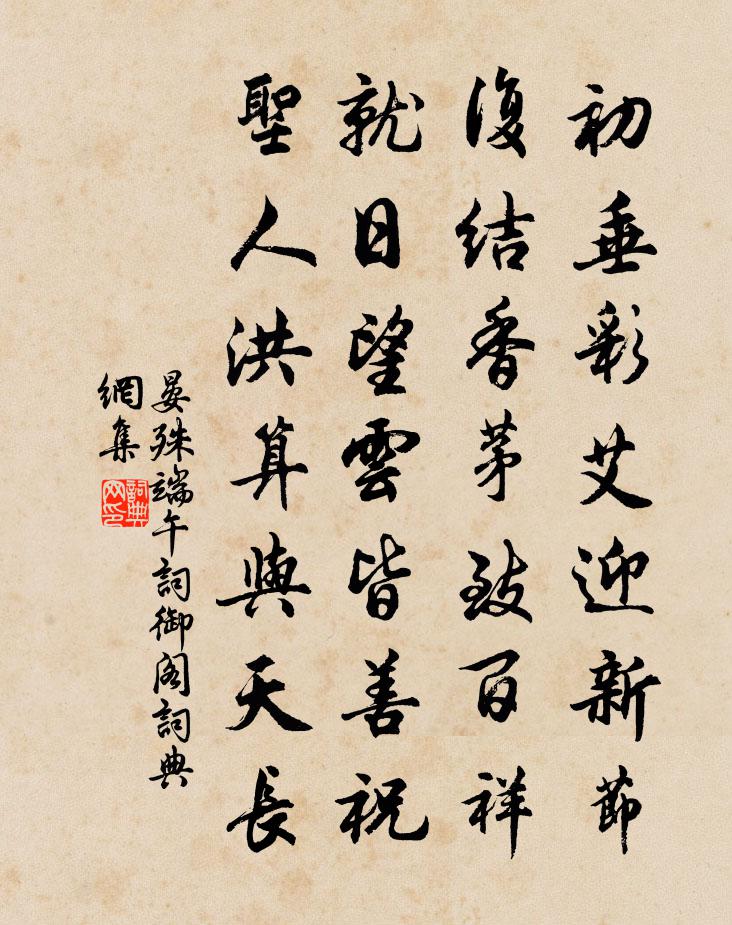 初垂彩艾迎新節
復結香茅致百祥
就日望雲皆善祝
聖人洪算與天長
晏殊端午詞御閣詞典
網集
詞典
网印